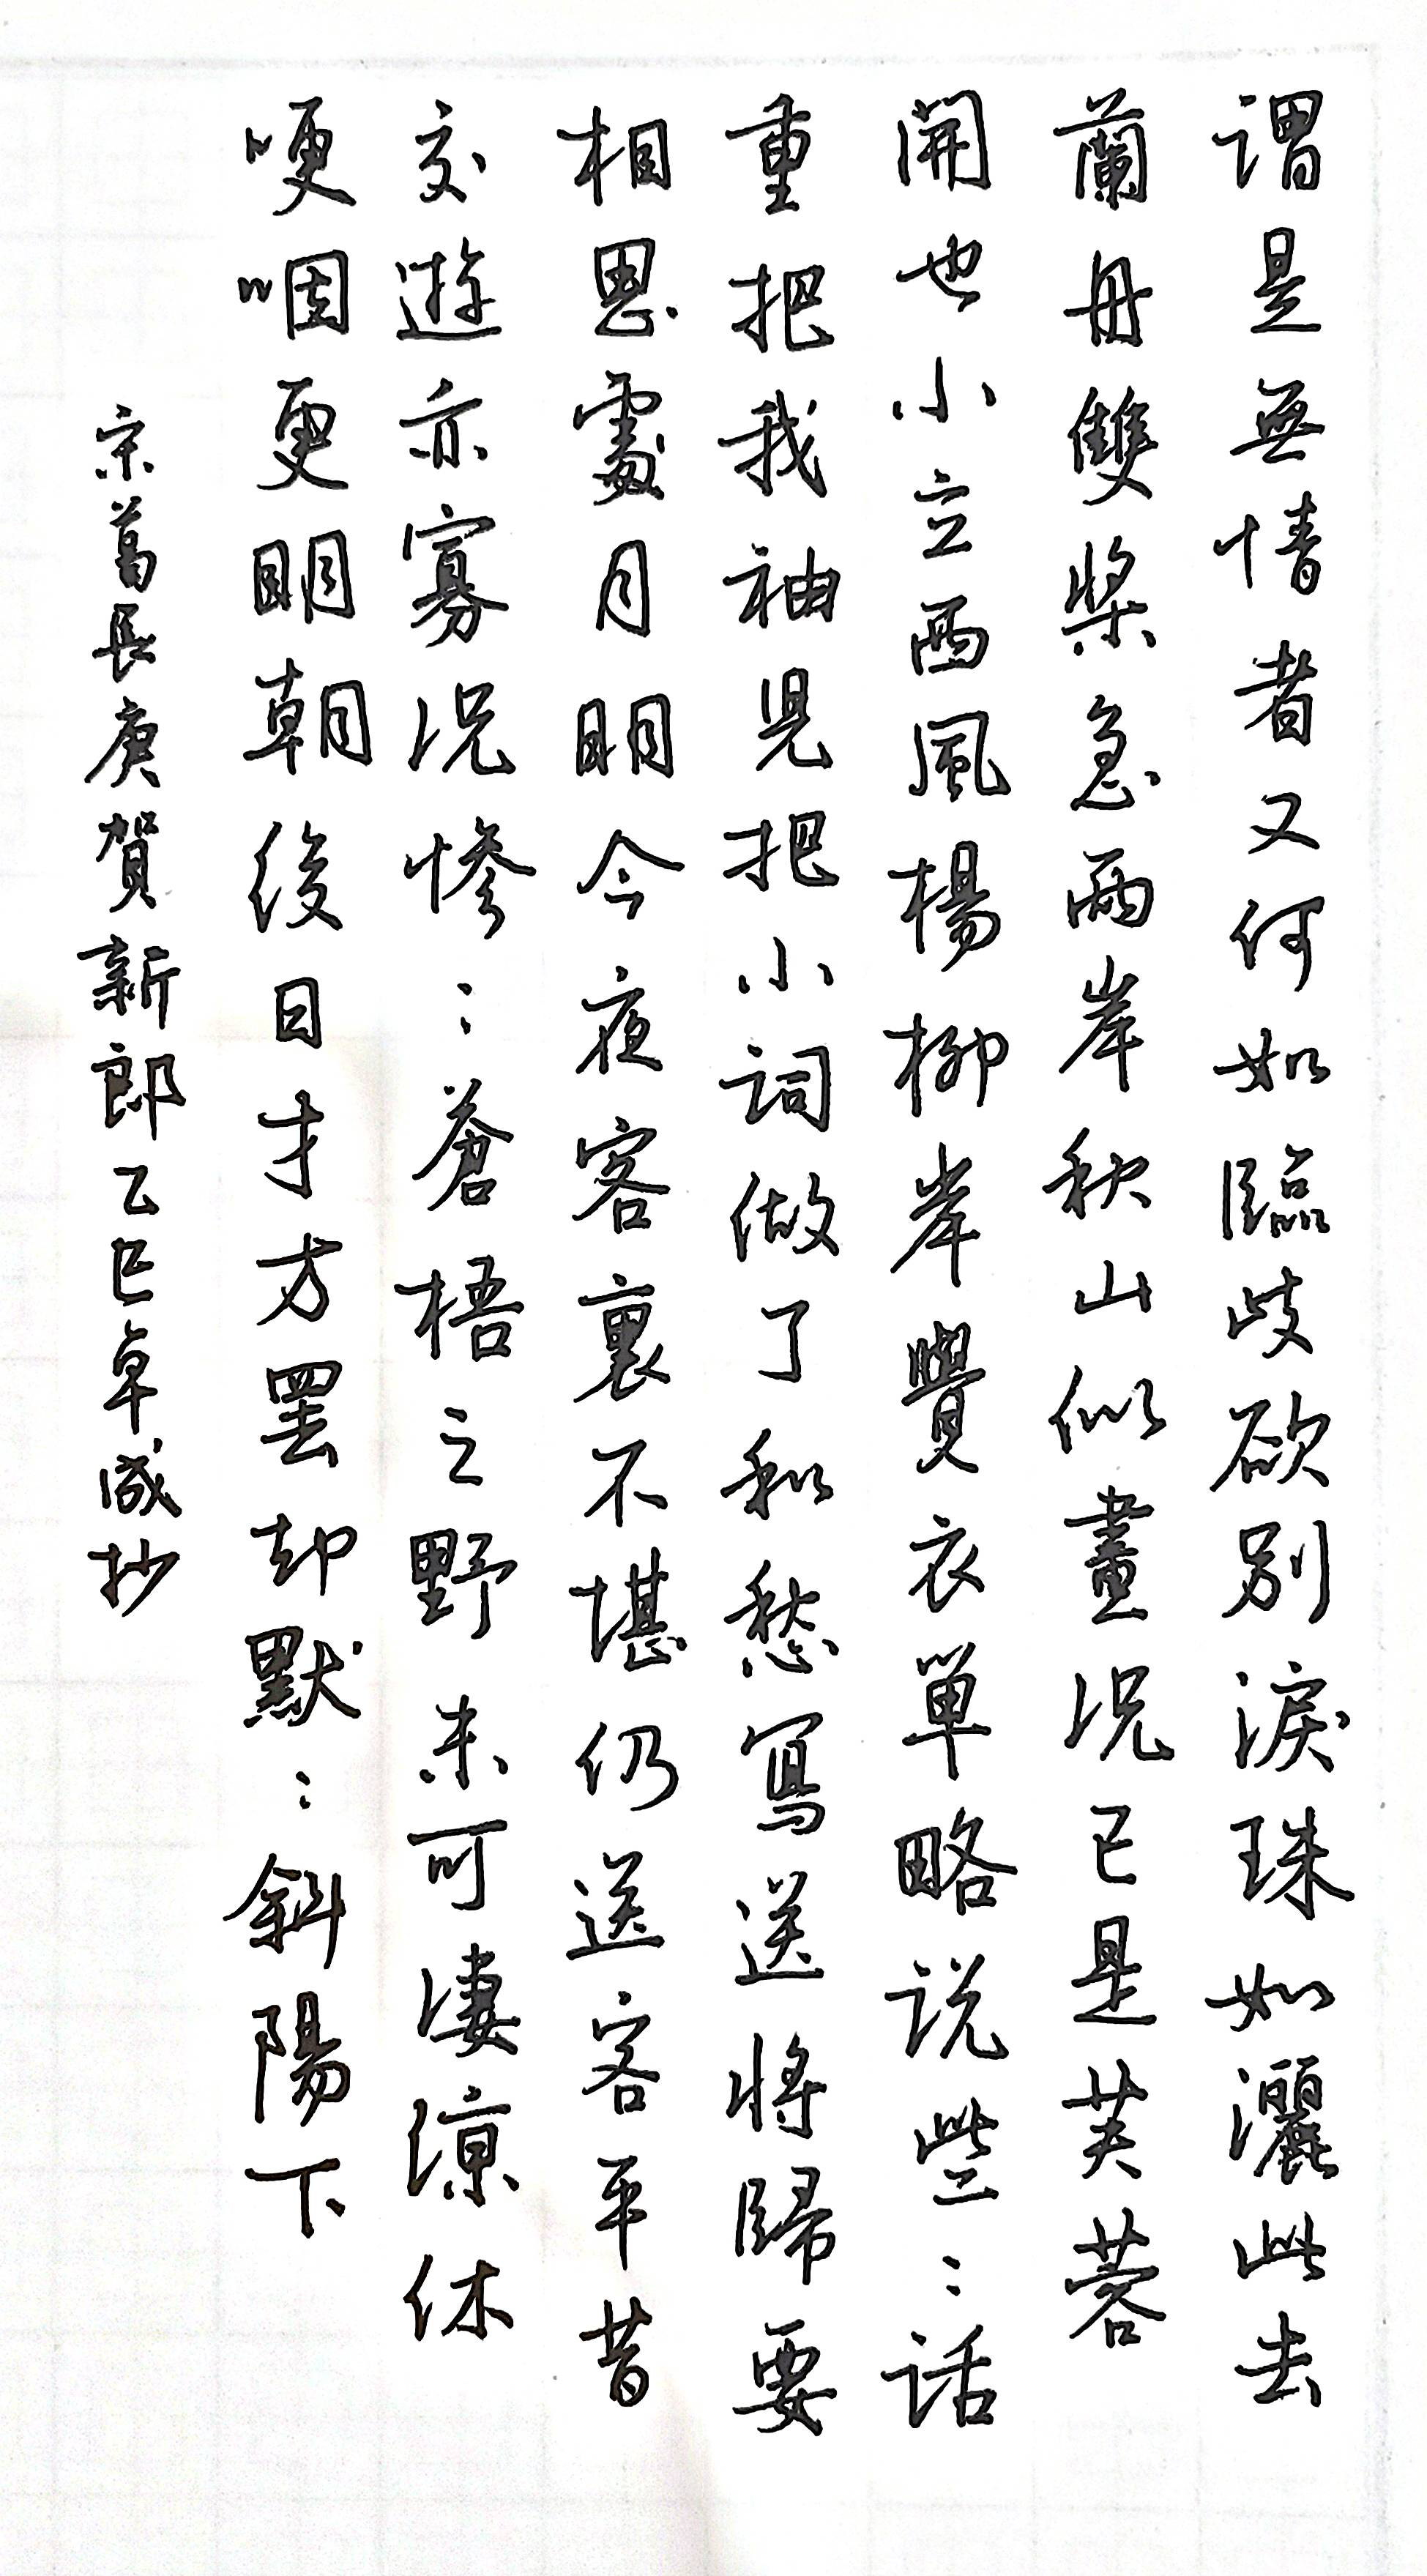 謂是無情者又何如臨歧欲別淚珠如灑此去
蘭舟雙槳急兩岸秋山似畫況已是芙蓉
開也小立西風楊柳岸覺衣單略說些：話
重把我袖兒把小詞做了和愁寫送將歸要
相思處月明今夜客裏不堪仍送客平昔
交遊亦寡況慘：蒼梧之野未可淒涼休
哽咽更明朝後日才方罷却默：斜陽下
宋葛長庚賀新郎乙巳卓成抄